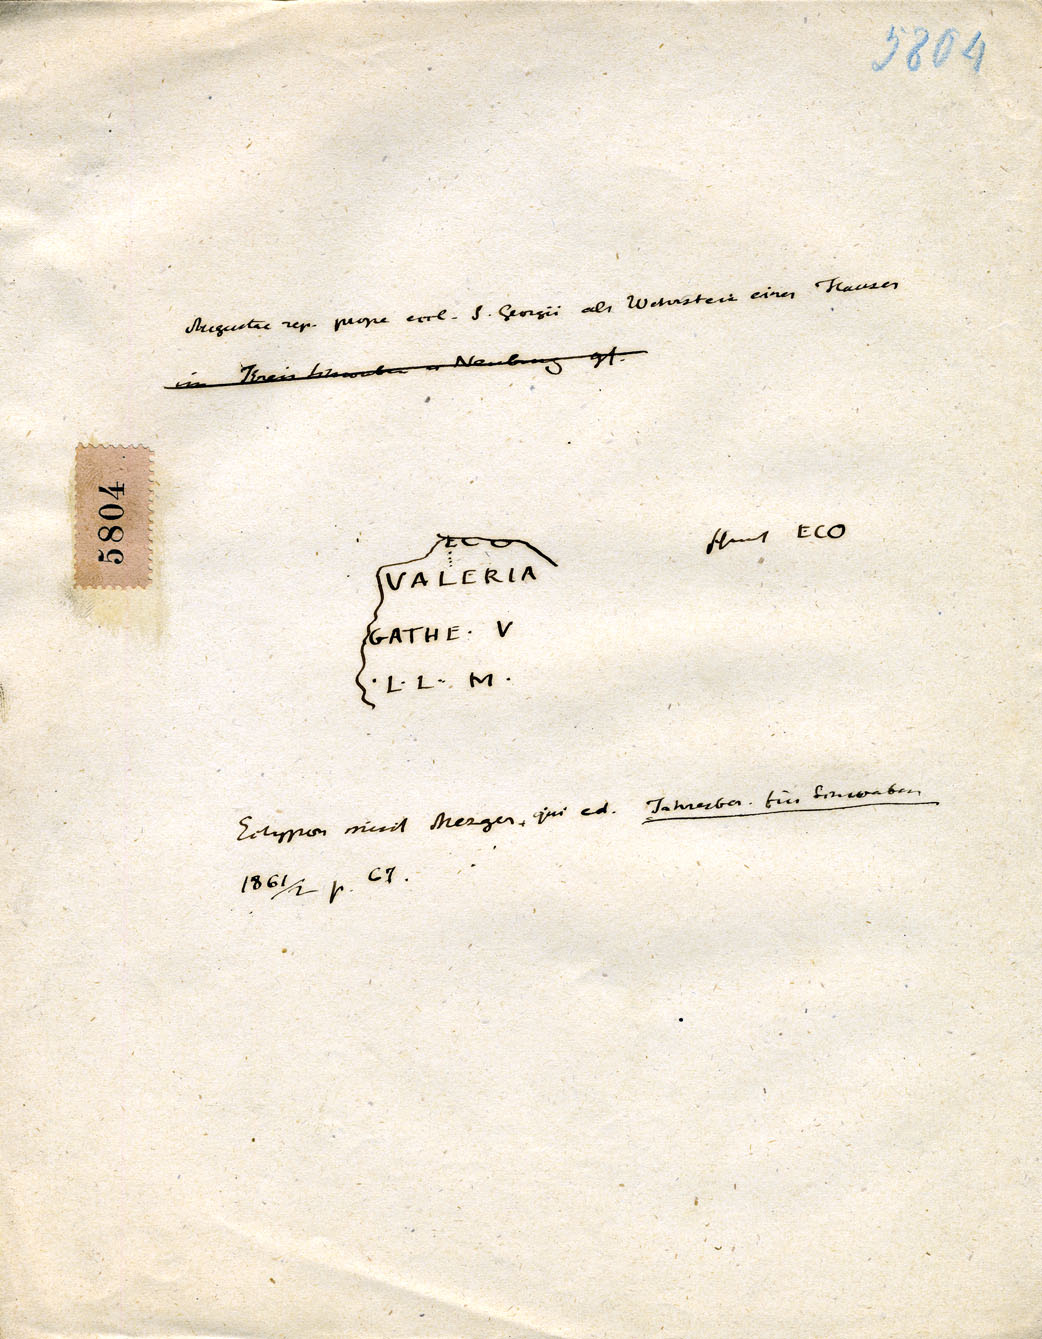 5804
Augustae rep. prope eccl. S. Georgii als Wehrstein eines Hauses
im Kreis Schwaben u Neuburg gf.
5804
ECO
VALERIA
GATHE · V
· L · L · M ·
ECO
Ectypon misit Mezger, qui ed. Jahresber. für Schwaben
1861/2 p. 67.